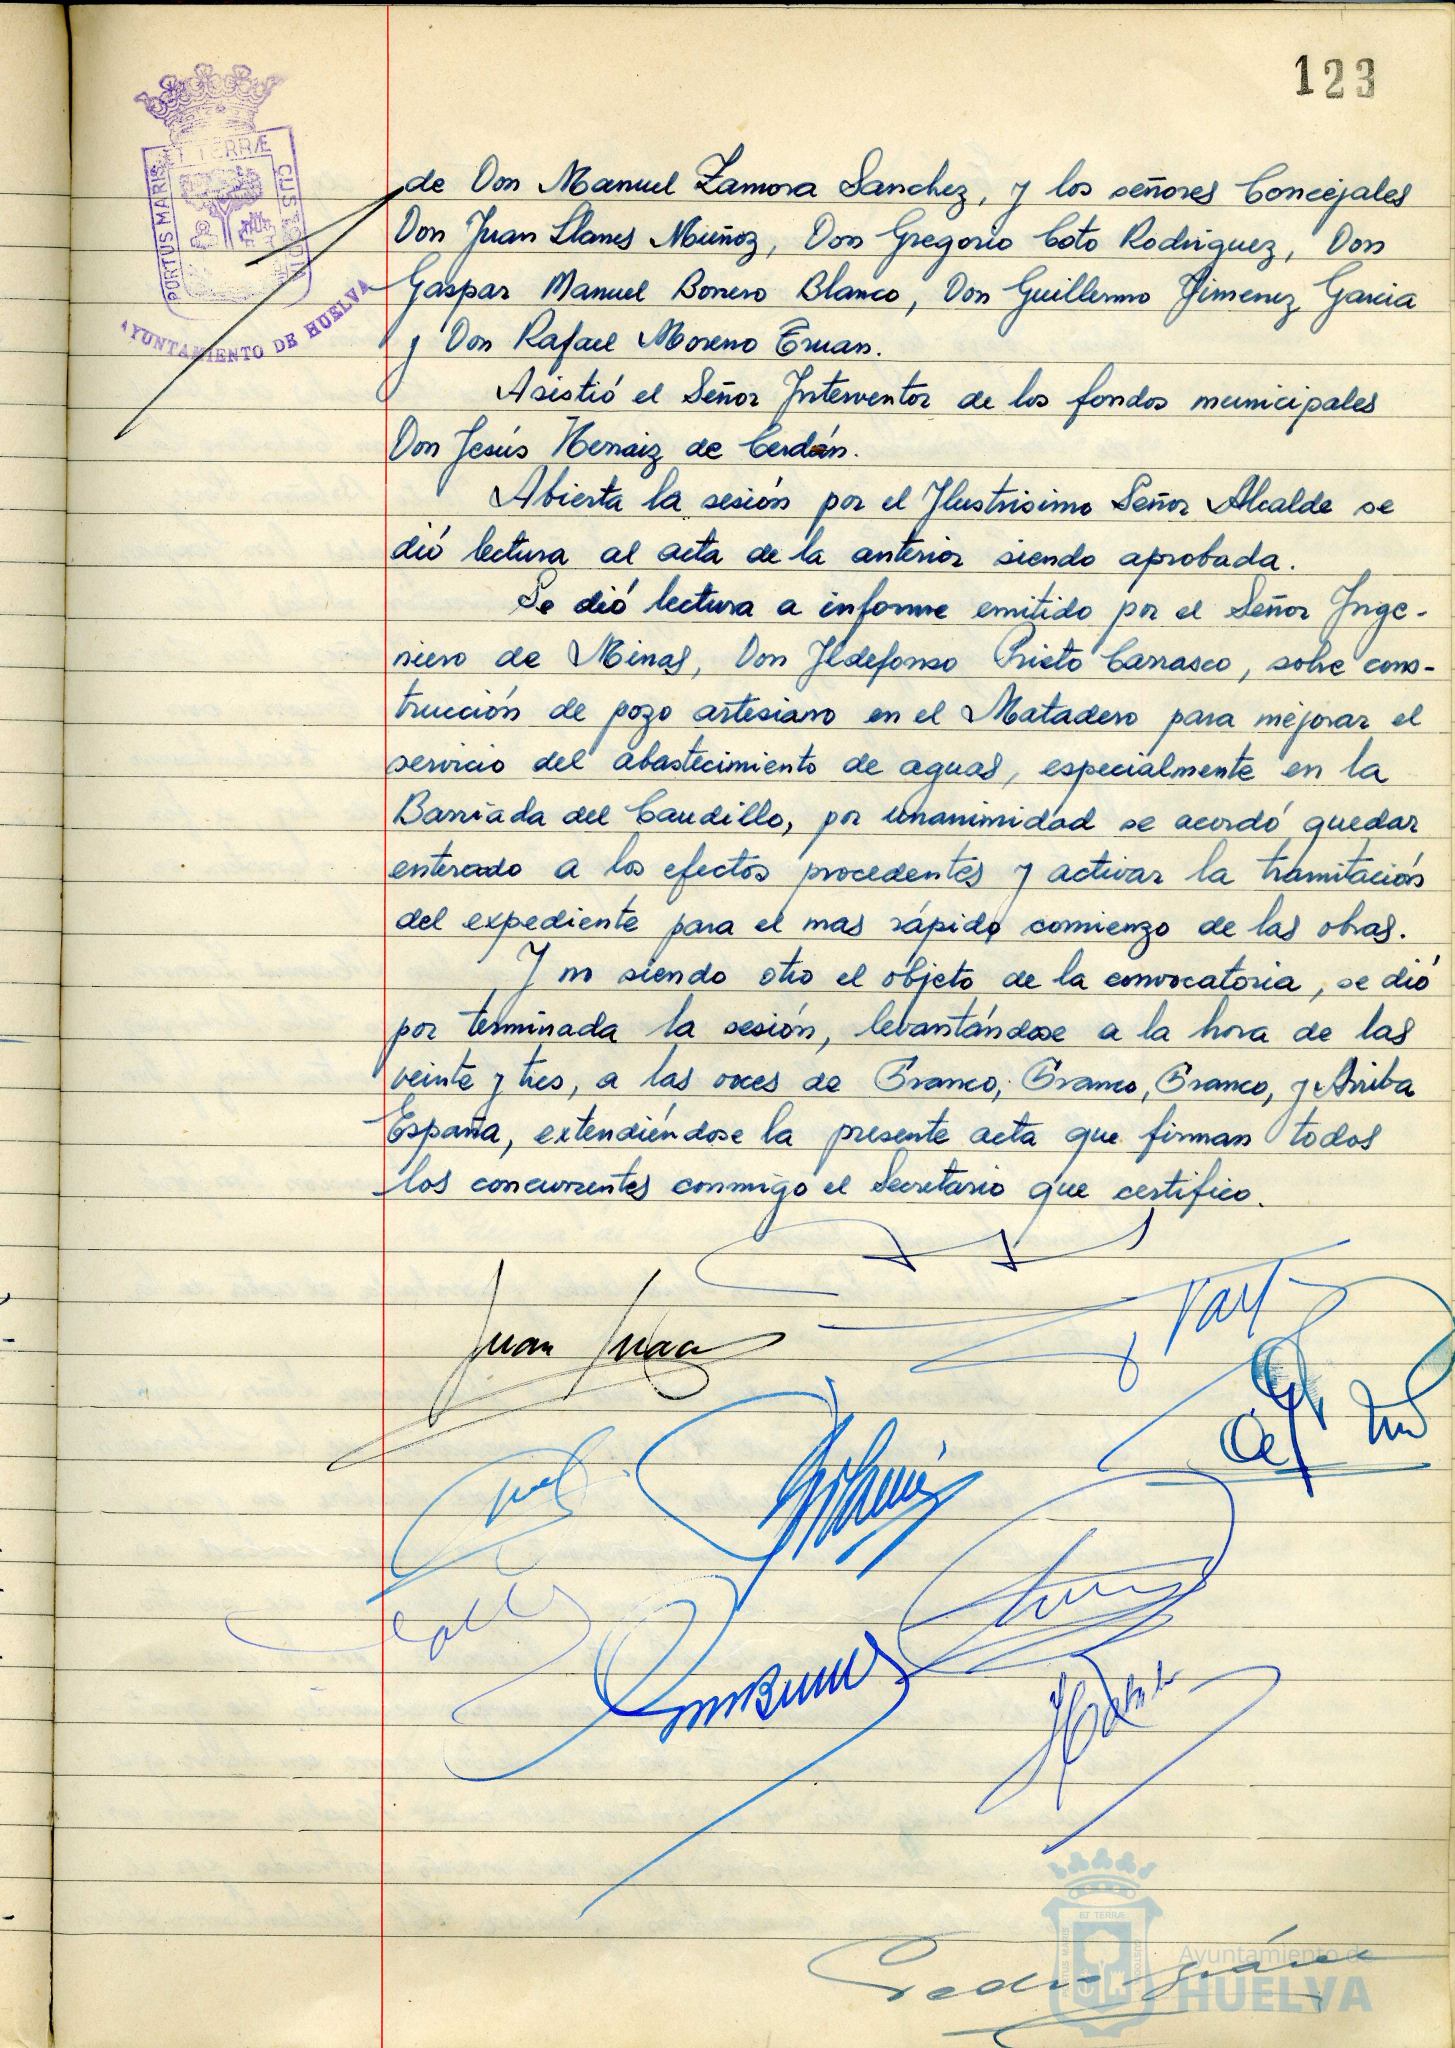 123
PORTUS MARIS ET TERRÆ CUSTODIA
AYUNTAMIENTO DE HUELVA
de Don Manuel Zamora Sanchez, y los señores Concejales
Don Juan Llanes Muñoz, Don Gregorio Coto Rodriguez, Don
Gaspar Manuel Borrero Blanco, Don Guillermo Jimenez Garcia
y Don Rafael Moreno Eruan.
Asistió el Señor Interventor de los fondos municipales
Don Jesús Hernaiz de Cerdán.
Abierta la sesión por el Ilustrisimo Señor Alcalde se
dió lectura al acta de la anterior siendo aprobada.
Se dió lectura a informe emitido por el Señor Inge-
niero de Minas, Don Ildefonso Prieto Carrasco, sobre cons-
trucción de pozo artesiano en el Matadero para mejorar el
servicio del abastecimiento de aguas, especialmente en la
Barriada del Caudillo, por unanimidad se acordó quedar
enterado a los efectos procedentes y activar la tramitación
del expediente para el mas rápido comienzo de las obras.
Y no siendo otro el objeto de la convocatoria, se dió
por terminada la sesión, levantándose a la hora de las
veinte y tres, a las voces de Franco, Franco, Franco, y Arriba
España, extendiéndose la presente acta que firman todos
los concurrentes conmigo el Secretario que certifico.
Juan
Pedro
Ayuntamiento de
HUELVA